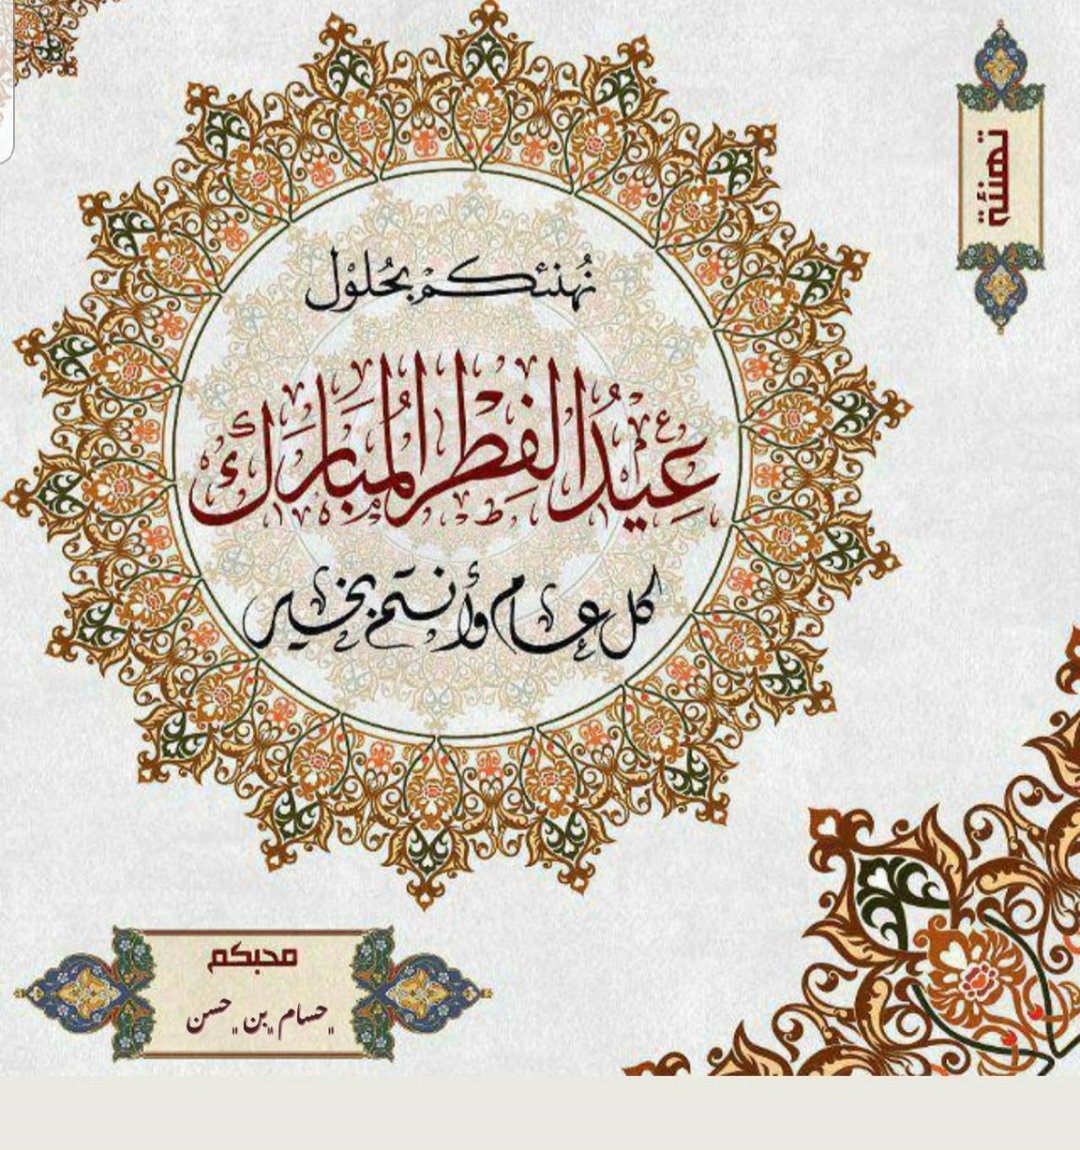 تهنئة
نُهنئكمْ بحُلوْل
عِيْدُ الفِطْر المُبَارَك
كل عام وأنتم بخير
محبكم
حسام بن حسن